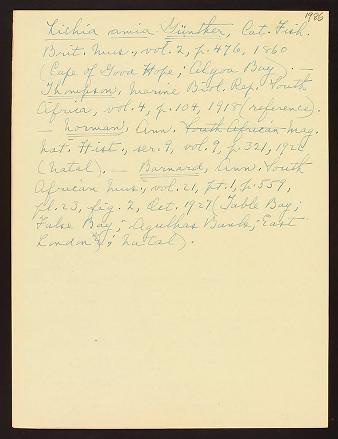 1926
Lichia amia Günther, Cat. Fish.
Brit. Mus., vol. 2, p. 476, 1860
(Cape of Good Hope; Algoa Bay). —
Thompson, Marine Biol. Rep. South
Africa, vol. 4, p. 104, 1918 (reference).
— Norman, Ann. South African Mag.
Nat. Hist., ser. 9, vol. 9, p. 321, 1922
(Natal). — Barnard, Ann. South
African Mus., vol. 21, pt. 1, p. 559,
pl. 23, fig. 2, Oct. 1927 (Table Bay;
False Bay; Agulhas Bank; East
London; Natal).